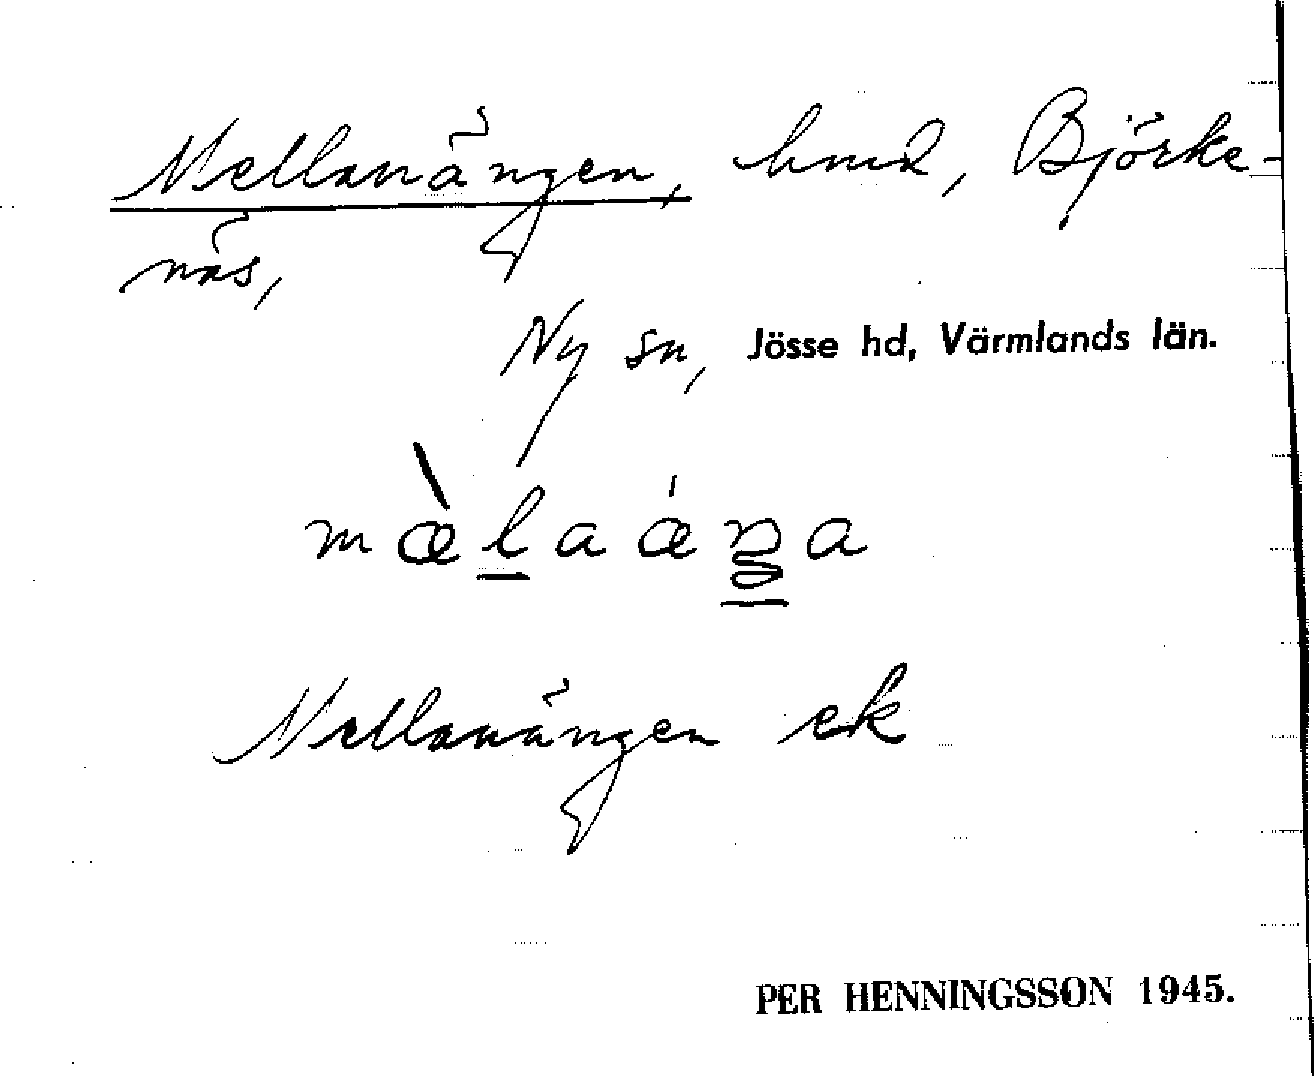 Mellanängen, hmd, Björke-
näs,
Ny sn, Jösse hd, Värmlands län.
mæ̀l̲aǽŋ̲a
Mellanängen ek
PER HENNINGSSON 1945.